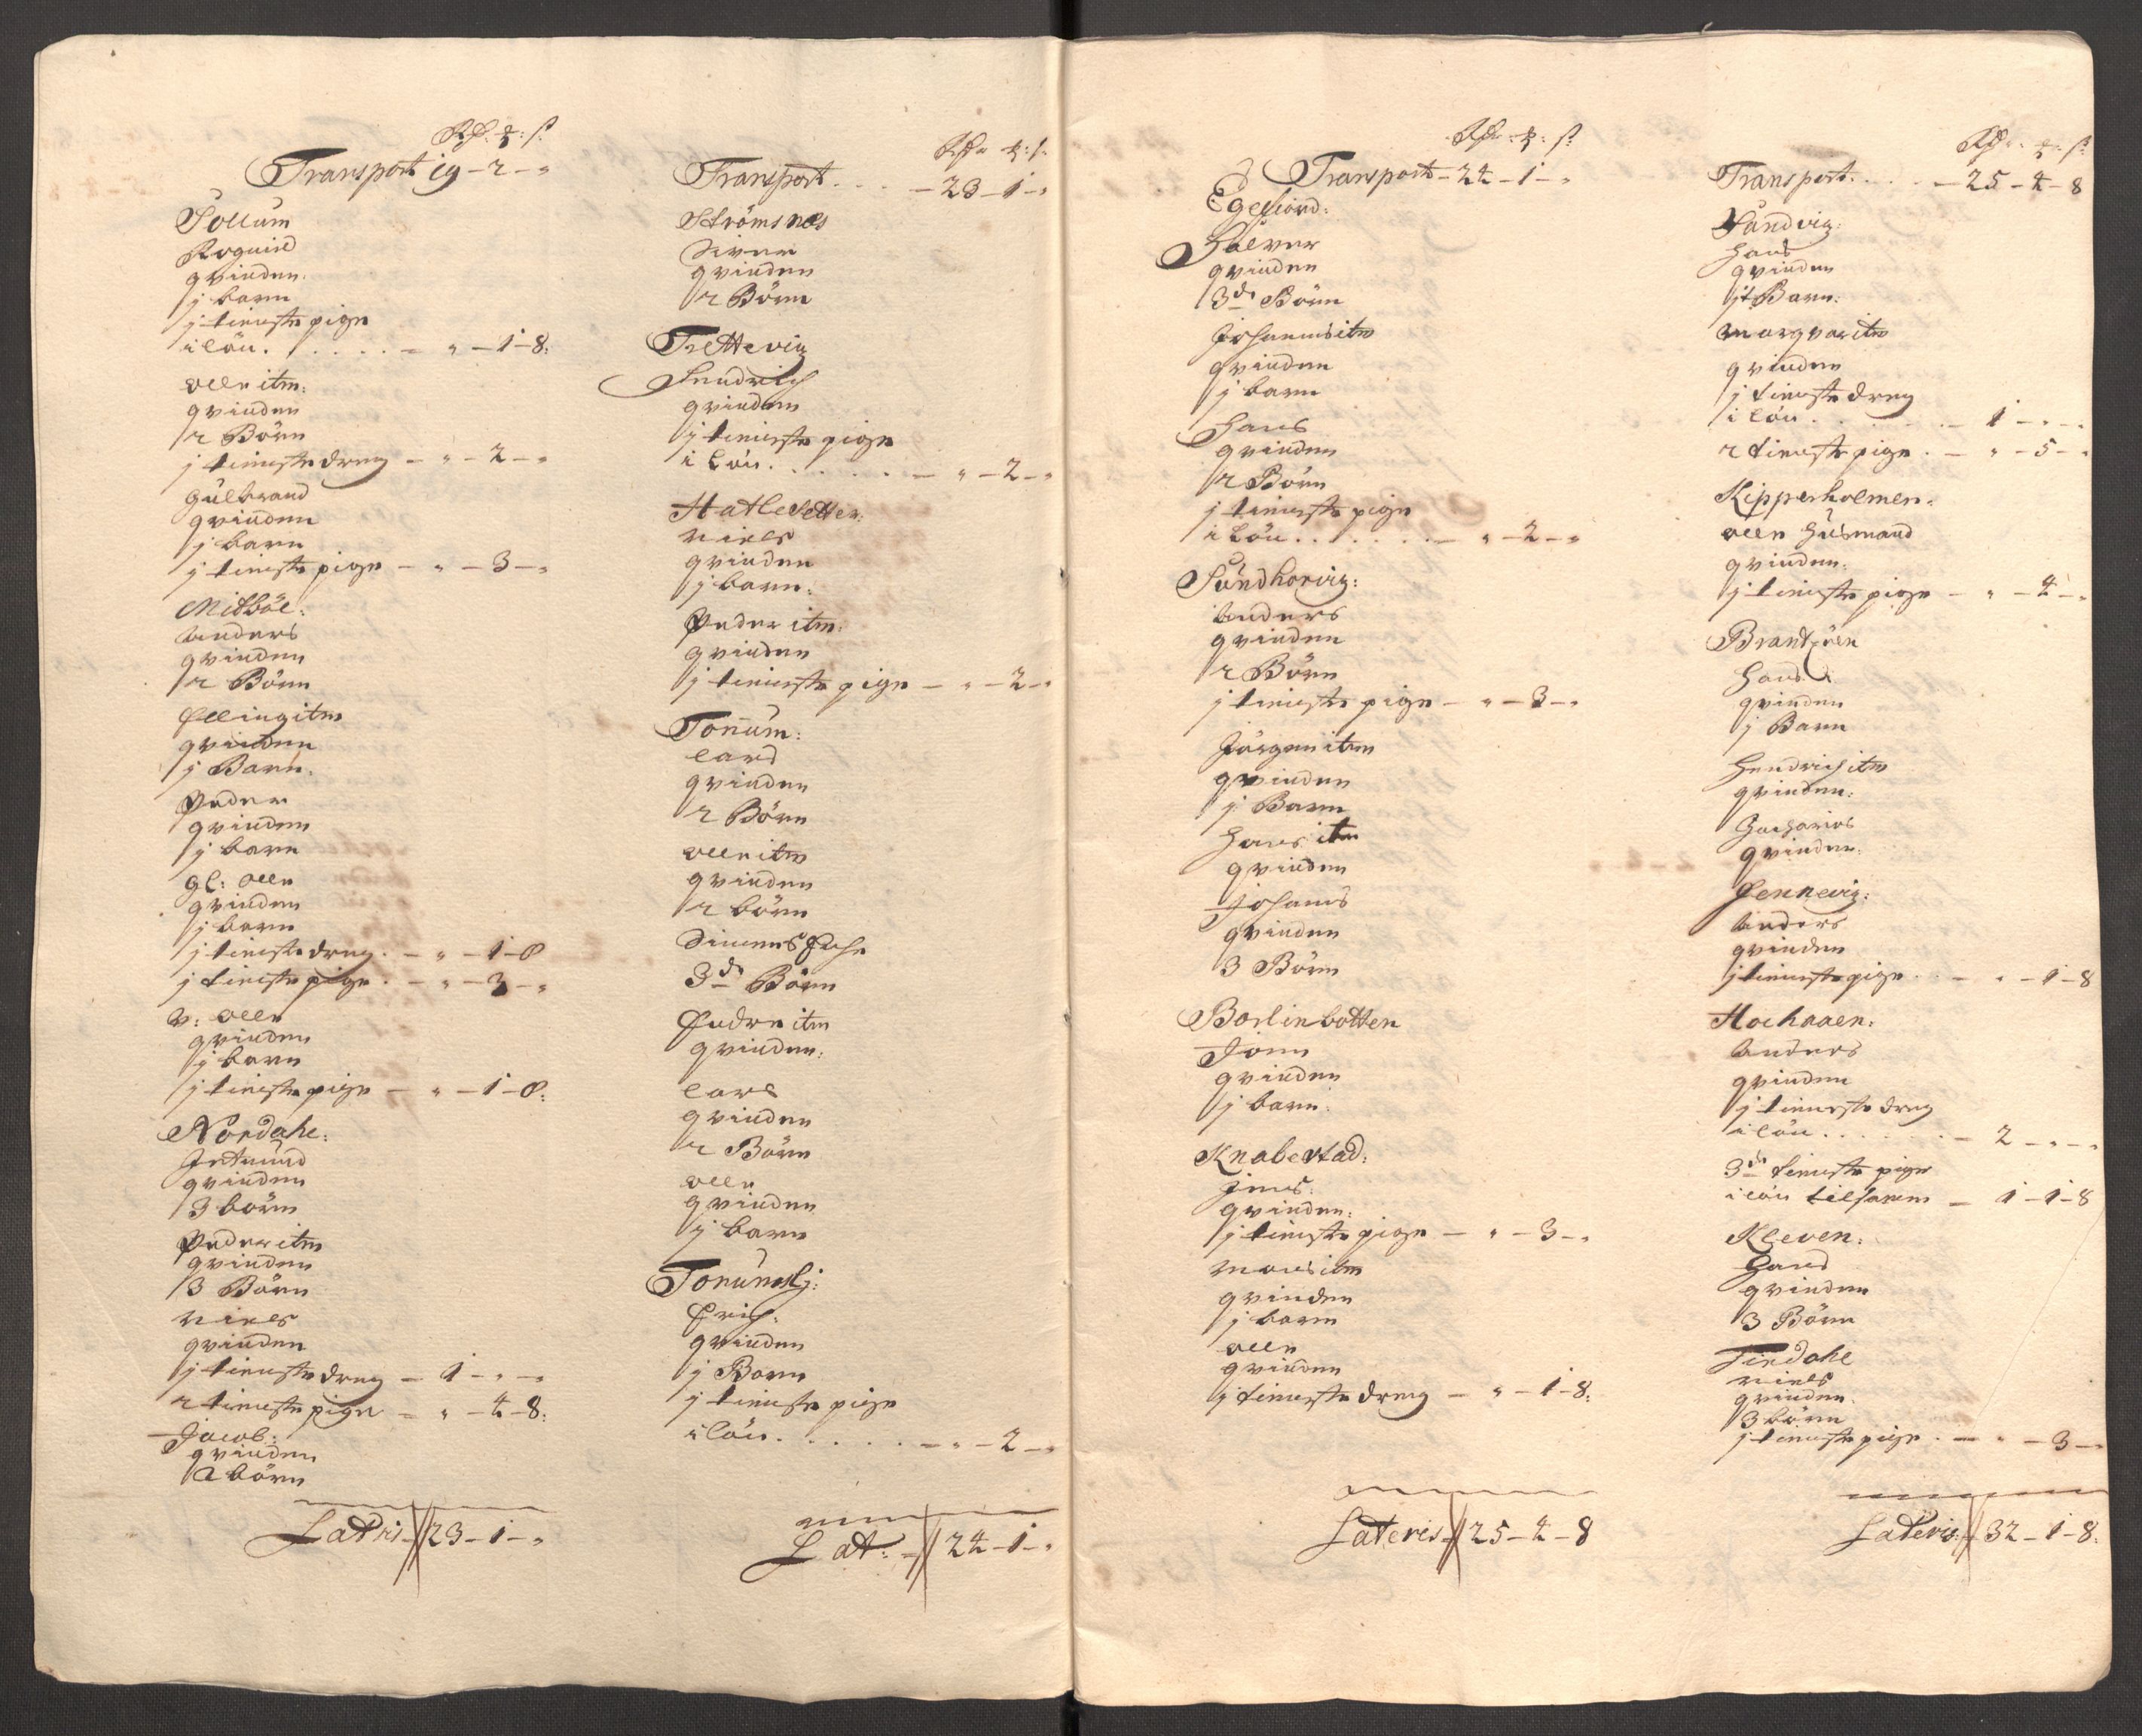 Rdr. ꝑ: ß:
Transport 19 – 2 – „
Sollum
Rognild
qvinden.
1 barn
1 tieniste pige
i lön. . . . . . – „ – 1 – 8:
olle itm:
qvinden
2 Börn
1 tieniste dreng – „ – 2 – „
Gulbrand
qvinden
1 barn
1 tieniste pige – „ – 3 – „
Midböe:
Anders
qvinden
2 Börn
Elling itm
qvinden
1 Barn.
Peder
qvinden
1 barn
gl: olle
qvinden
1 barn
1 tieniste dreng. – „ – 1 – 8
1 tieniste pige. – „ – 3 – „
V: olle
qvinden
1 barn
1 tieniste pige – „ – 1 – 8:
Nordahl:
qvinden
3 börn
Peder itm
qvinden
3 Börn
Niels
qvinden
1 tieniste dreng – 1 – „ – „
2 tieniste piger – „ – 4 – 8:
Jacob:
qvinden
2 börn
Latris 23 – 1 – „
Rdr ꝑ: ß:
Transport. . . . – 23 – 1 – „
Strömsnes
Siver
qvinden
2 Börn
Trettevig
Hendrich
qvinden
1 tieniste pige
i lön. . . . . . – „ – 2 – „
Hatlesetter:
Niels
qvinden
1 barn:
Peder itm:
qvinden
1 tieniste pige – „ – 2 – „
Tonnum:
Lard
qvinden
2 Börn
olle itm
qvinden
2 börn
Simens Enche
3de Börn
Endre itm
qvinden:
Lars
qvinden
2 Börn
olle
qvinden
1 barn
Erich:
qvinden
1 Barn
1 tieniste pige
i lön. . . . . . – „ – 2 – „
Lat: 24 – 1 – „
Rdr ꝑ: ß:
Transport – 24 – 1 – „
Egefiord:
Halver
qvinden
3de Börn
Johannis itm
qvinden
1 barn
Hans
qvinden
2 Börn
1 tieniste pige
i Lön. . . . . . – „ – 2 – „
Sündhorvig:
Anders
qvinden
2 Börn
1 tieniste pige – „ – 3 – „
Jörgen itm
qvinden
1 Barn
Hans itm
qvinden
Johanis
qvinden
3 Börn
Borlinbotten
Jonn
qvinden
1 barn:
Knabestad:
Jens:
qvinden:
1 tieniste pige – „ – 3 – „
Mons itm
qvinden
1 barn
olle
qvinden
1 tieniste dreng – „ – 1 – 8:
Lateris 25 – 4 – 8
Rdr. ꝑ: ß:
Transport. . . . – 25 – 4 – 8
Sandvig:
Hans
qvinden
1t Barn:
Margvar itm
qvinden
1 tieniste dreng
i lön. . . . . . – 1 – „ – „
2 tieniste pige. – „ – 5 – „
Kipperholmen:
olle Huusmand
qvinden:
1 tieniste pige – „ – 4 – „
Hans:
qvinden
1 Barn
Hendrich itm
qvinden:
Zacharias
qvinden:
Hennevig:
Anders
qvinden
1 tieniste pige. – „ – 1 – 8
Anders
qvinden
1 tieniste dreng
i lön. . . . . . – 2 – „ – „
3de tieniste piger
i lön tilsamm – 1 – 1 – 8
Kleven:
Hans
qvinden
3 Börn
Findahl
Niels
qvinden.
3 börn
1 tieniste pige. – „ – 3 – „
Lateris: 32 – 1 – 8: